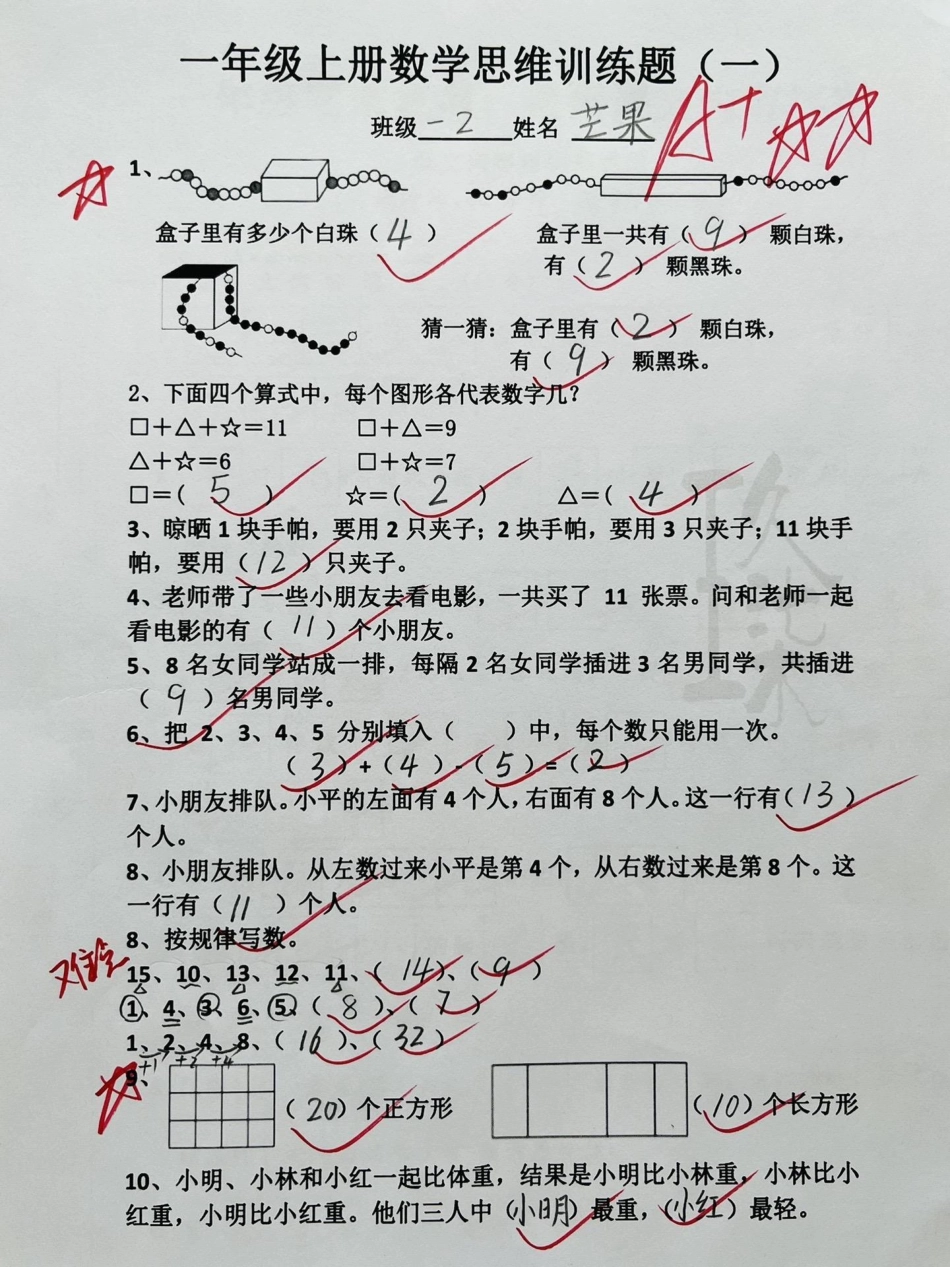 一年级上册数学思维训练题（一）
班级 一2 姓名 芒果
A+
1、
盒子里有多少个白珠（ 4 ） 盒子里一共有（ 9 ） 颗白珠，
有（ 2 ） 颗黑珠。
猜一猜：盒子里有（ 2 ） 颗白珠，
有（ 9 ） 颗黑珠。
2、下面四个算式中，每个图形各代表数字几？
□＋△＋☆＝11 □＋△＝9
△＋☆＝6 □＋☆＝7
□＝（ 5 ） ☆＝（ 2 ） △＝（ 4 ）
3、晾晒 1 块手帕，要用 2 只夹子；2 块手帕，要用 3 只夹子；11 块手
帕，要用（ 12 ）只夹子。
4、老师带了一些小朋友去看电影，一共买了 11 张票。问和老师一起
看电影的有（ 11 ）个小朋友。
5、8 名女同学站成一排，每隔 2 名女同学插进 3 名男同学，共插进
（ 9 ）名男同学。
6、把 2、3、4、5 分别填入（ ）中，每个数只能用一次。
（ 3 ）+（ 4 ）-（ 5 ）=（ 2 ）
7、小朋友排队。小平的左面有 4 个人，右面有 8 个人。这一行有（ 13 ）
个人。
8、小朋友排队。从左数过来小平是第 4 个，从右数过来是第 8 个。这
一行有（ 11 ）个人。
8、按规律写数。
15、10、13、12、11、（ 14 ）、（ 9 ）
1、4、3、6、5、（ 8 ）、（ 7 ）
1、2、4、8、（ 16 ）、（ 32 ）
+1 +2 +4
9、
（ 20 ）个正方形 （ 10 ）个长方形
10、小明、小林和小红一起比体重，结果是小明比小林重，小林比小
红重，小明比小红重。他们三人中（小明）最重，（小红）最轻。